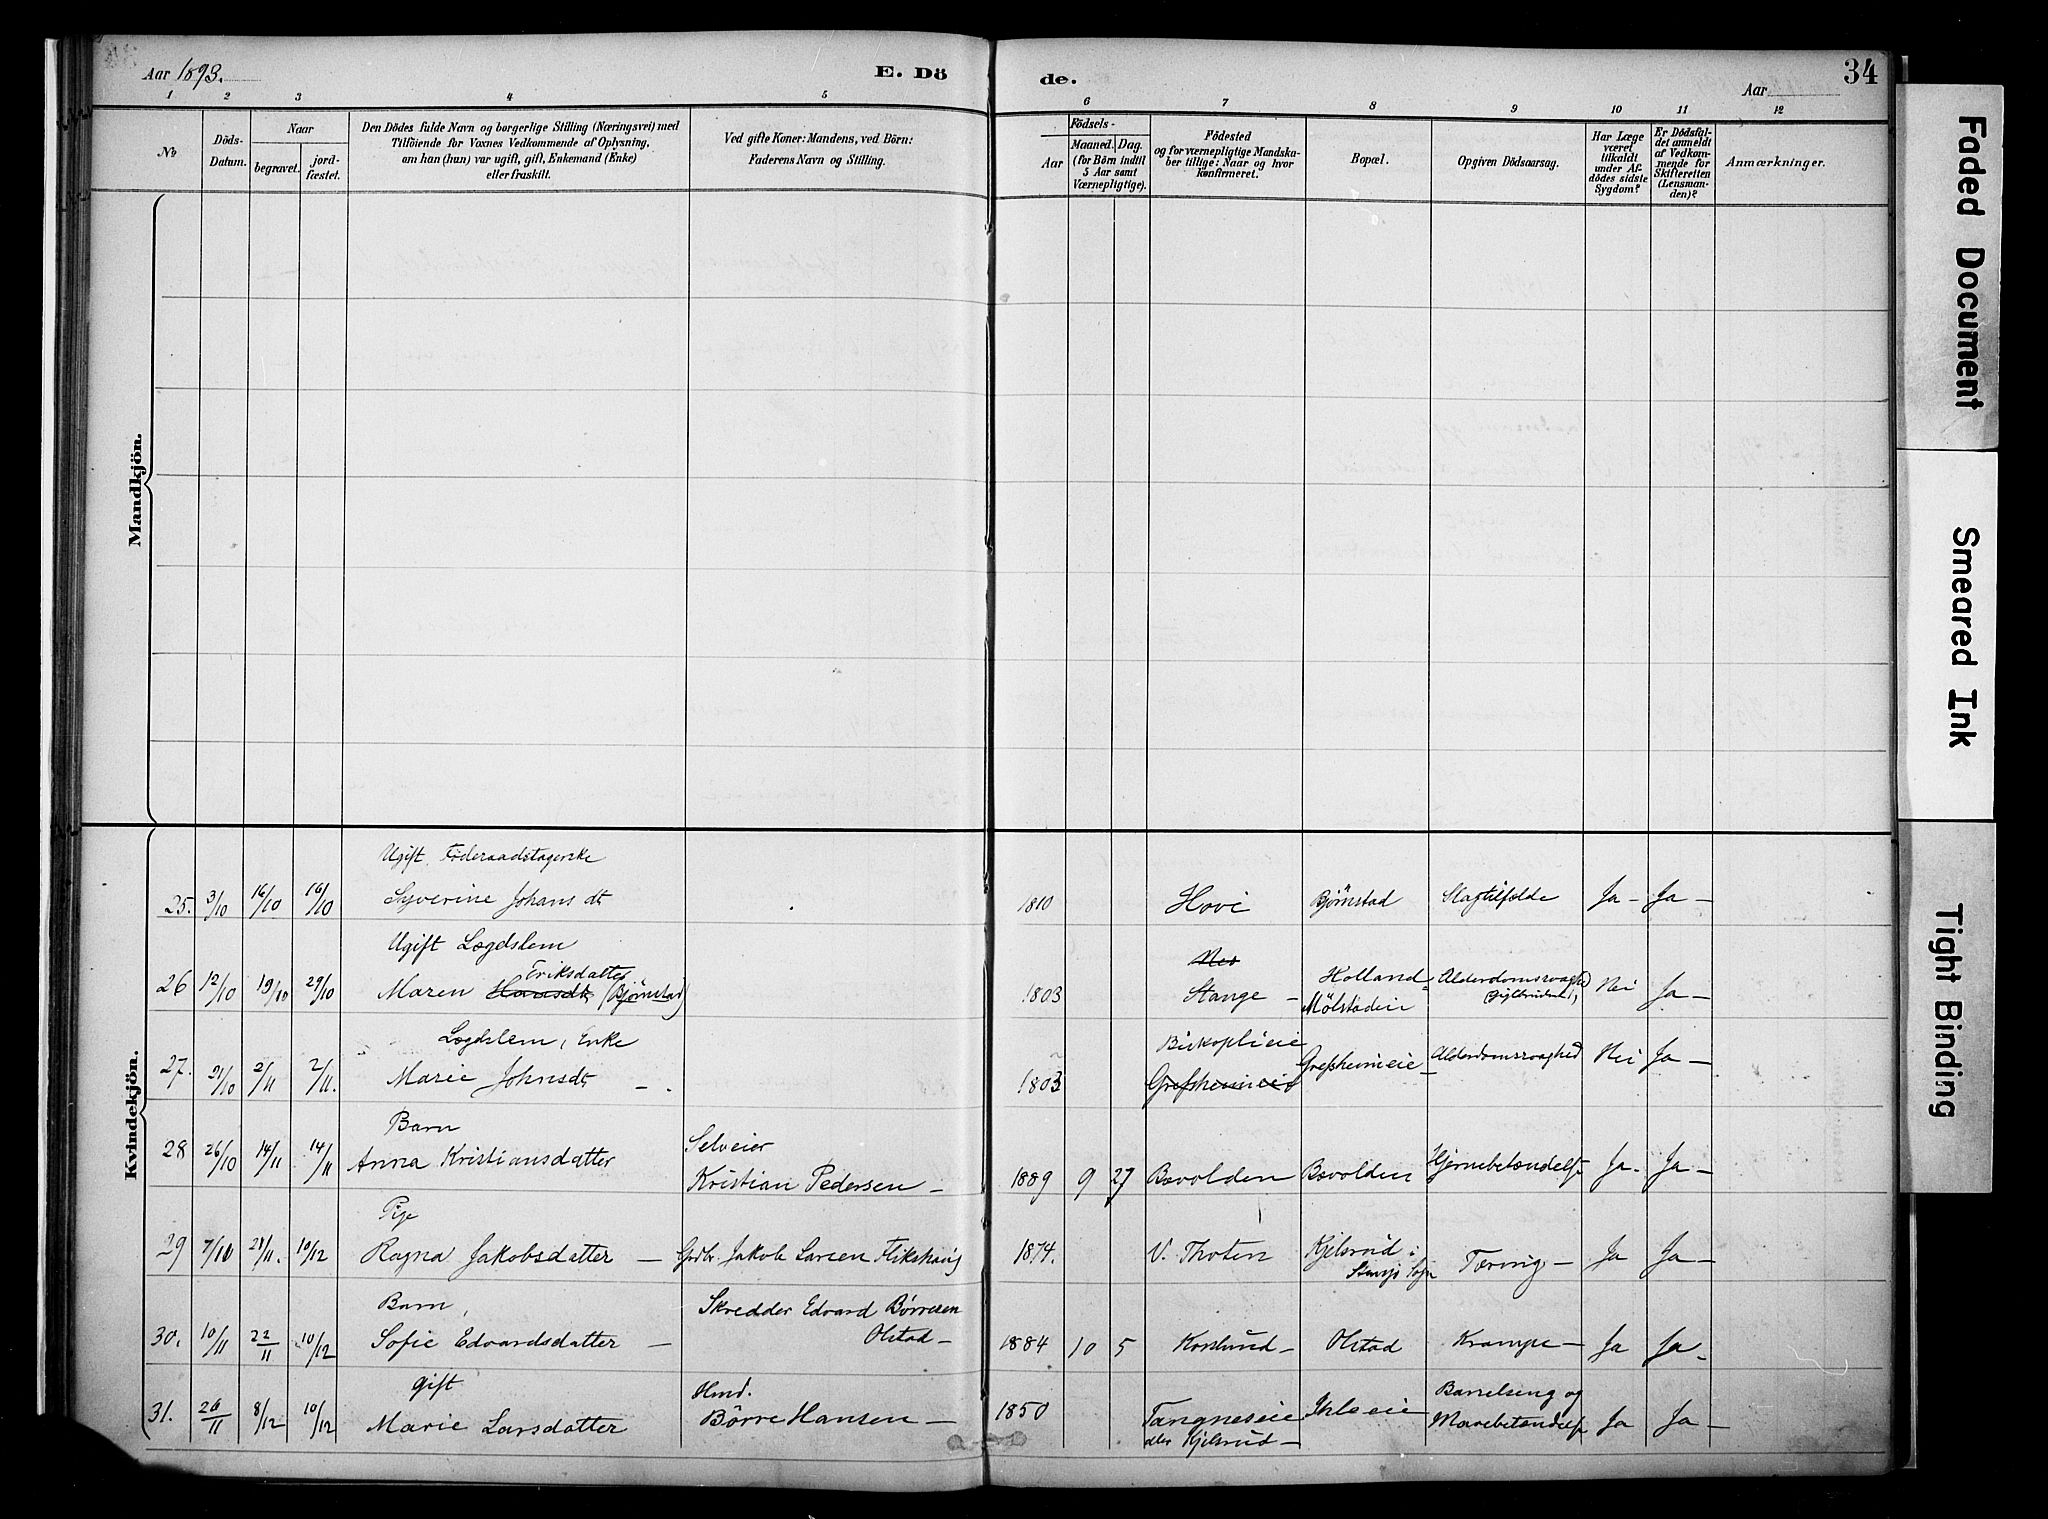 Aar 1893.
E. Dö
de.
Aar
34
1 2 3 4 5 6 7 8 9 10 11 12
No
Döds-Datum.
Naar
begravet.
jord-fæstet.
Den Dödes fulde Navn og borgerlige Stilling (Næringsvei) med
Tilföiende for Voxnes Vedkommende af Oplysning,
om han (hun) var ugift, gift, Enkemand (Enke)
eller fraskilt.
Ved gifte Koner: Mandens, ved Börn:
Faderens Navn og Stilling.
Födsels-
Aar
Maaned. Dag.
(for Börn indtil
5 Aar samt
Værnepligtige).
Födested
og for værnepligtige Mandska-
ber tillige: Naar og hvor
konfirmeret.
Bopæl.
Opgiven Dödsaarsag.
Har Læge
været
tilkaldt
under Af-
dödes sidste
Sygdom?
Er Dödsfal-
det anmeldt
af Vedkom-
mende for
Skifteretten
(Lensman-
den)?
Anmærkninger.
Mandkjön.
Kvindekjön.
Ugift Føderaadstagerske
25. 3/10 16/10 16/10 Syverine Johansdt 1810 Hovi Bjørnstad Slagtilfælde Ja - Ja -
Ugift Lægdslem
Eriksdatter
26 12/10 19/10 29/10 Maren Hansdt (Bjørnstad) 1803 Nes Stange - Holland Mølstadeie Alderdomssvaghed Nei Ja -
Lægdslem, Enke
27. 21/10 2/11 2/11. Marie Johnsdt - . 1803 Biskoplieie Grefsheimeie Grefsheimeie Alderdomssvaghed Nei Ja -
Barn
28 26/10 14/11 14/11 Anna Kristiansdatter Selveier Kristian Pedersen - 1889 9 27 Bævolden Bævolden Hjernebetændelse Ja. Ja -
Pige
29 7/11 21/11. 10/12 Ragna Jakobsdatter - Gbr. Jakob Larsen Flikshaug 1874. V. Thoten Kjelsrud i Stensjø Sogn Tæring - Ja Ja -
Barn,
30. 10/11 22/11 10/12 Sofie Edvardsdatter - Skredder Edvard Børresen Olstad - 1884 10 5 Korslund - Olstad Krampe - Ja Ja -
gift
31. 26/11 8/12 10/12 Marie Larsdatter Hmd. Børre Hansen - 1850 Tangneseie eller Kjelsrud - Ihleeie Barselseng og Mavebetændelse Ja Ja -
Faded Document
Smeared Ink
Tight Binding